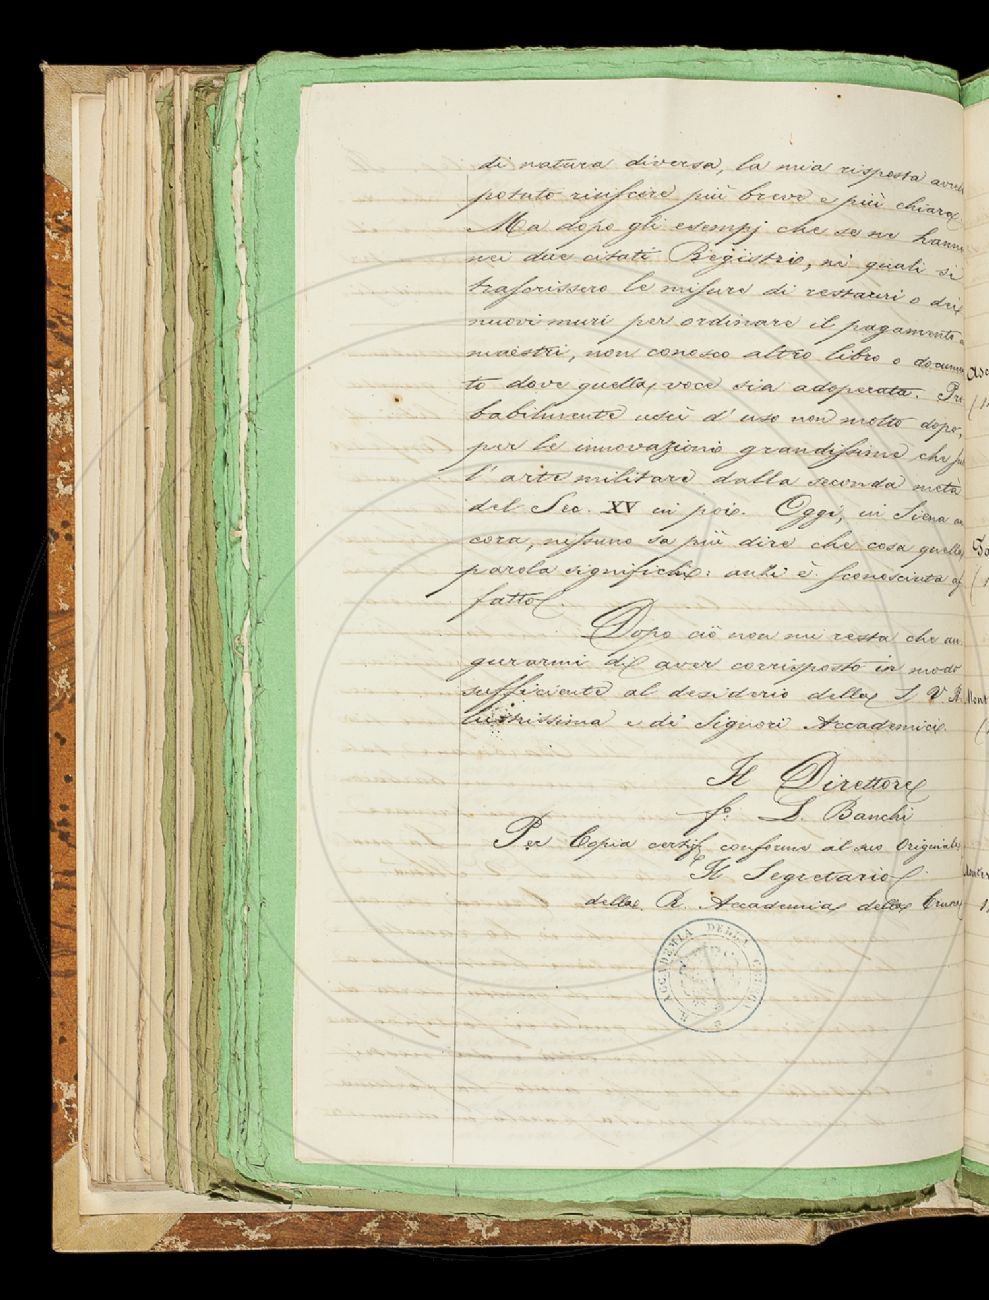 di natura diversa, la mia risposta avreb
potuto riuscire più breve e più chiara
Ma dopo gli esempj che se ne hanno
nei due citati Registri, ne' quali si
trascrissero le misure di restauri o di
nuovi muri per ordinare il pagamento a
maestri, non conosco altro libro o documen
to dove quella voce sia adoperata. Pro
babilmente uscì d'uso non molto dopo,
per le innovazioni grandissime che fu
l'arte militare dalla seconda metà
del Sec. XV in poi. Oggi, in Siena an
cora, nessuno sa più dire che cosa quella
parola significhi: anzi è sconosciuta af
fatto.
Dopo ciò non mi resta che au
gurarmi di aver corrisposto in modo
sufficiente al desiderio della S. V. Il
lustrissima e de' Signori Accademici.
Il Direttore
fo. L. Banchi
Per Copia certif. conforme al suo Originale
Il Segretario
della R. Accademia della Crusca
R. ACCADEMIA DELLA CRUSCA